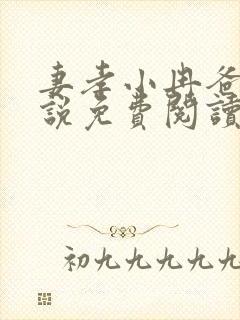 妻孝小冉爸
說免費閱讀
初九九九九九